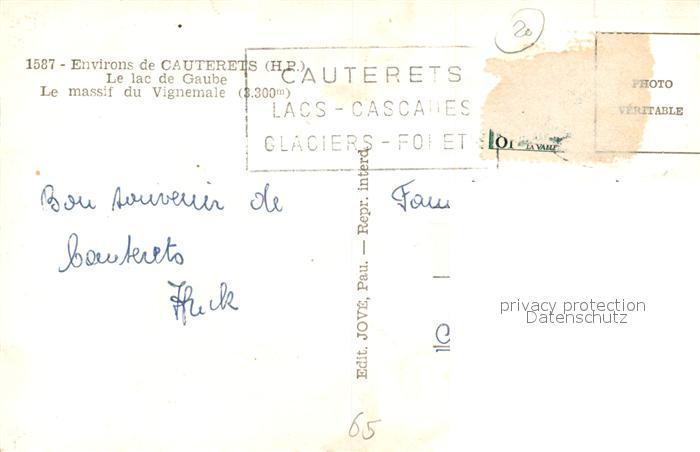 1587 - Environs de CAUTERETS (H.P.)
Le lac de Gaube
Le massif du Vignemale (3.300m)
CAUTERETS
LACS - CASCADES
GLACIERS - FORET
20
PHOTO
VÉRITABLE
LA VALL
Bon souvenir de
Cauterets
Fam
Edit. JOVÉ, Pau. — Repr. interd.
privacy protection
Datenschutz
65